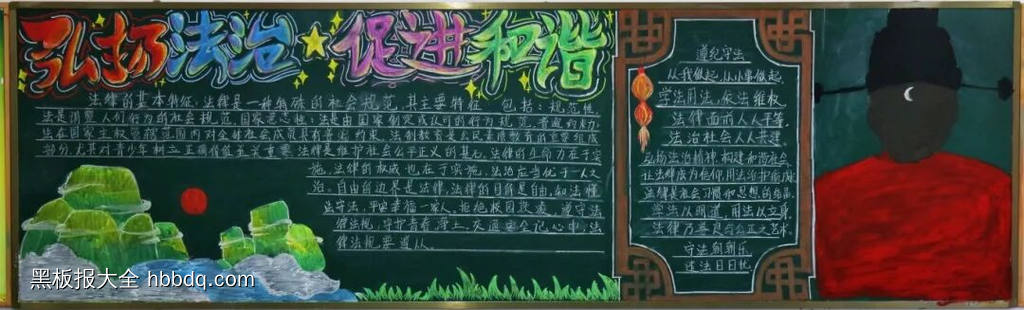 弘扬法治 促进和谐
法律的基本特征，法律是一种特殊的社会规范，其主要特征 包括：规范性
法是调整人们行为的社会规范，国家意志性：法是由国家制定或认可的行为规范，普遍约束力
法在国家主权管辖范围内对全体社会成员具有普遍约束
部分，尤其对青少年树立正确价值至关重要，法律是维护社会公平正义的基石，法律的生命力在于实
施，法律的权威也在于实施，法治应当优于一人之
治。自由的边界是法律，法律的目的是自由，知法懂
法守法，平安幸福一家人，拒绝校园欺凌，遵守法
律法规，守护青春净土，交通安全记心中，法
律法规要遵从。
遵纪守法
从我做起，从小事做起，
学法用法，依法维权，
法律面前人人平等，
法治社会人人共建，
弘扬法治精神，构建和谐社会
让法律成为信仰，用法治护航
法律是社会习惯和思想的结晶
学法以明道，用法以立身，
法律乃善良与公正之艺术
守法朝朝乐
违法日日忧
黑板报大全 hbbdq.com